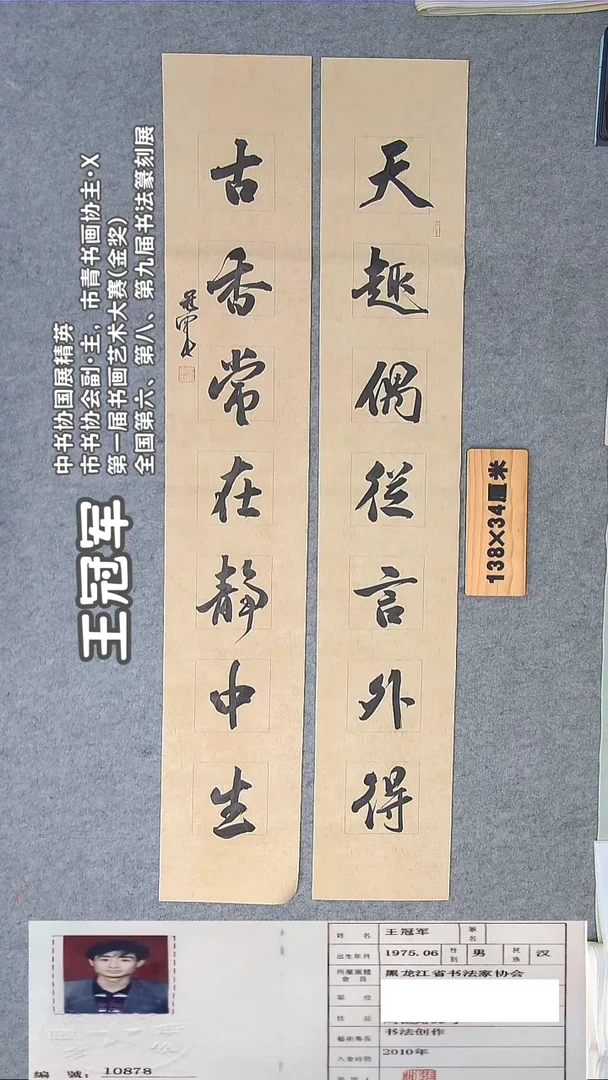 天趣偶从言外得
古香常在静中生
冠军书
138×34厘米
中书协国展精英
市书协会副·主，市青书画协主·X
第一届书画艺术大赛(金奖)
全国第六、第八、第九届书法篆刻展
王冠军
姓名 王冠军 笔名
出生年月 1975.06 性别 男 民族 汉
所属团体会员 黑龙江省书法家协会
职位
住址
艺术专长 书法创作
入会时间 2010年
编號: 10878